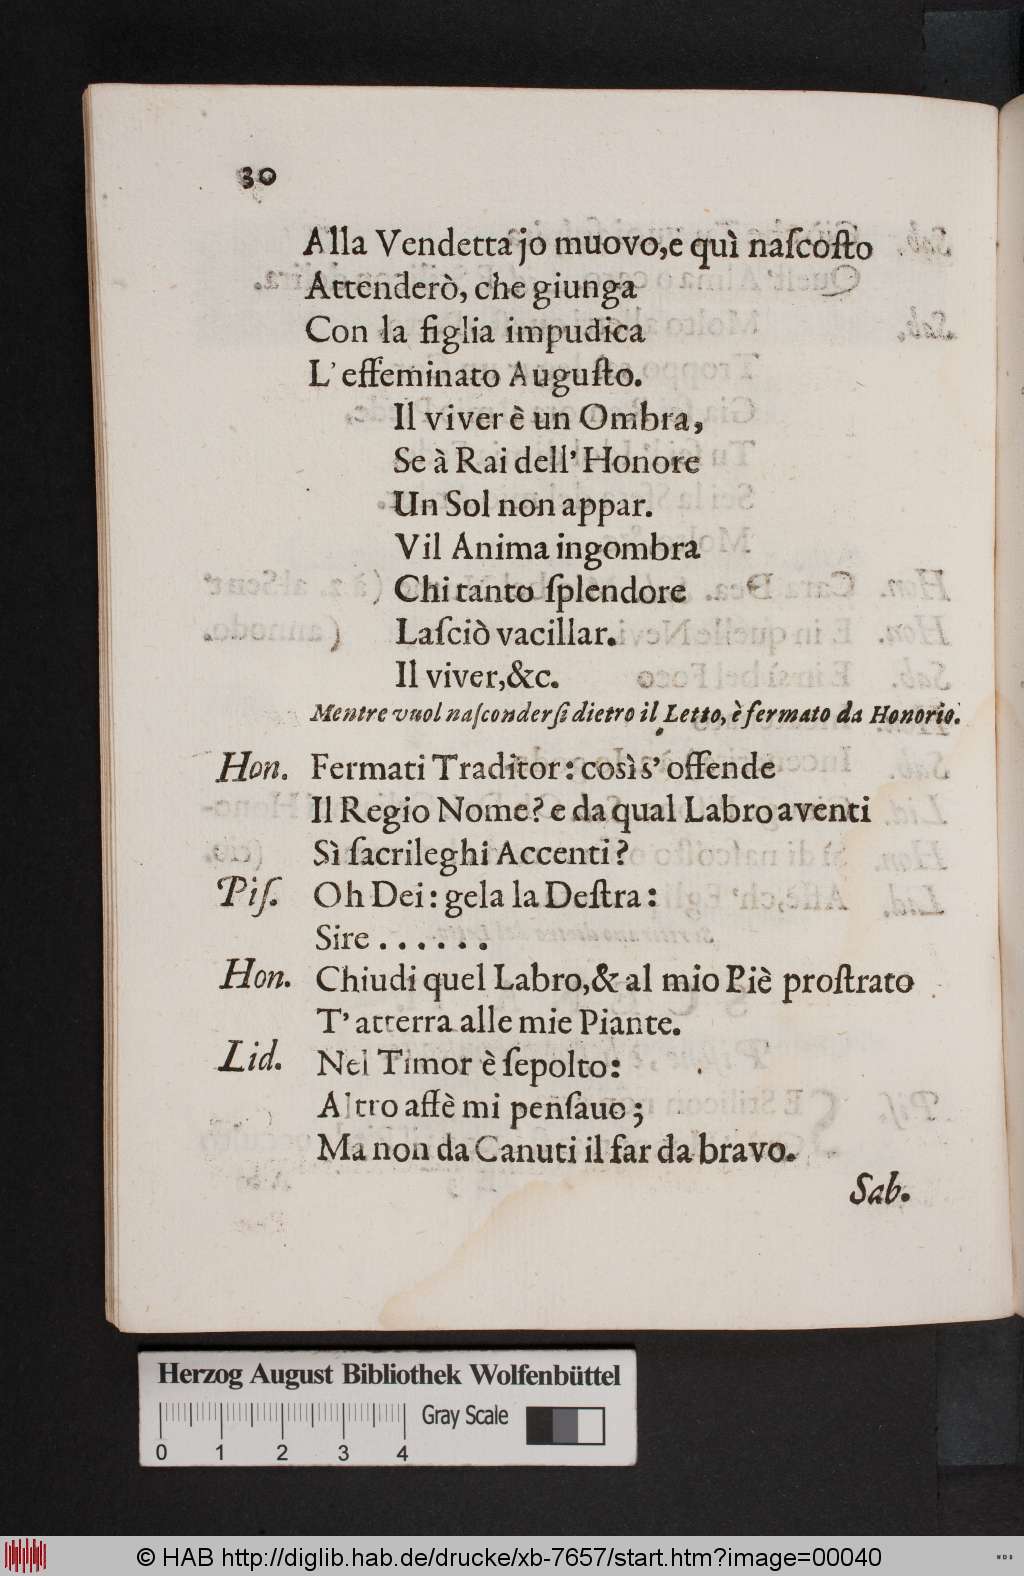 30
Alla Vendetta jo muovo,e quì naſcoſto
Attenderò, che giunga
Con la figlia impudica
L' effeminato Auguſto.
Il viver è un Ombra,
Se à Rai dell' Honore
Un Sol non appar.
Vil Anima ingombra
Chi tanto ſplendore
Laſciò vacillar.
Il viver,&c.
Mentre vuol naſconderſi dietro il Letto, è fermato da Honorio.
Hon. Fermati Traditor: così s' offende
Il Regio Nome? e da qual Labro aventi
Sì ſacrileghi Accenti?
Piſ. Oh Dei: gela la Deſtra:
Sire . . . . . .
Hon. Chiudi quel Labro,& al mio Piè proſtrato
T' atterra alle mie Piante.
Lid. Nel Timor è ſepolto:
Altro affè mi penſauo;
Ma non da Canuti il far da bravo.
Sab.
Herzog August Bibliothek Wolfenbüttel
Gray Scale
0 1 2 3 4
© HAB http://diglib.hab.de/drucke/xb-7657/start.htm?image=00040